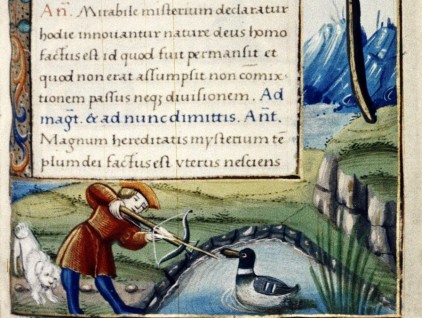 Añ. Mirabile misterium declaratur
hodie innouantur nature deus homo
factus est id quod fuit permansit et
quod non erat assumpsit non comix⸗
tionem passus neqꝫ diuisionem. Ad
magt̃. & ad nunc dimittis. Añt.
Magnum hereditatis mysterium tẽ⸗
plum dei factus est vterus nesciens